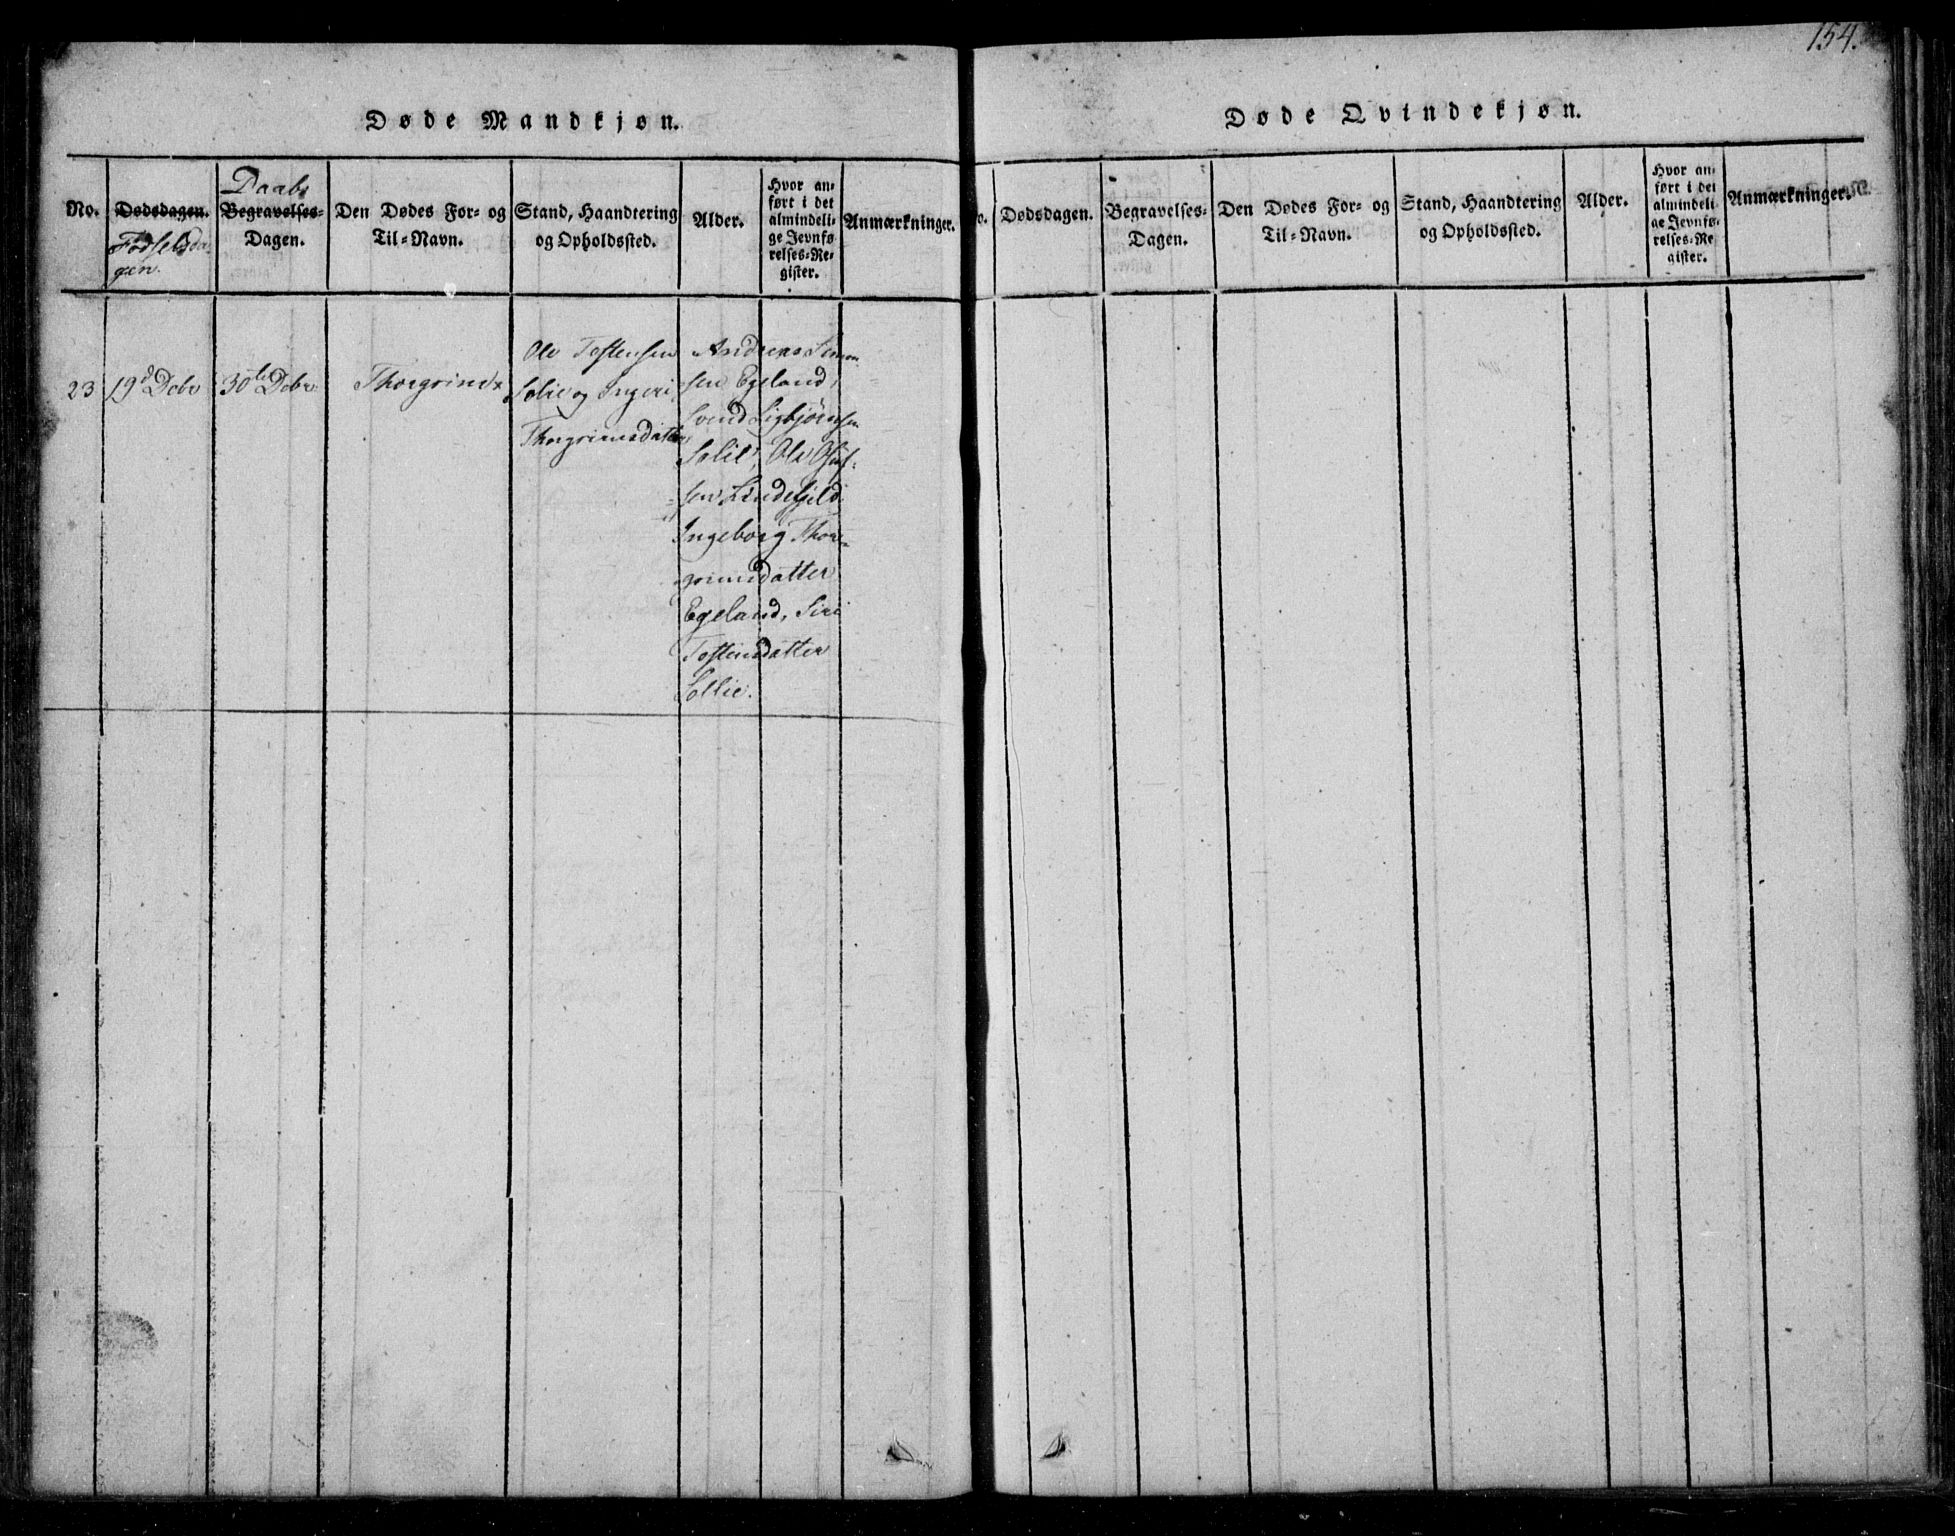 154.
Døde Mandkjøn.
No.
Dødsdagen.
Fødselsda-
gen.
Daabs
Begravelses-
Dagen.
Den Dødes For- og
Til-Navn.
Stand, Haandtering
og Opholdssted.
Alder.
Hvor an-
ført i det
almindeli-
ge Jevnfø-
relses-Re-
gister.
Anmærkninger.
23
19d Debr
30te Debr
Thorgrim
Ole Tostensen
Solie og Ingeri
Thorgrimsdatter
Andreas Simon
sen Egeland,
Svend Sigbjørnsen
Solie, Ole Oluf-
sen Lindefjeld
Ingeborg Thor-
grimsdatter
Egeland, Siri
Tostensdatter
Sollie.
Døde Qvindekjøn.
o.
Dødsdagen.
Begravelses-
Dagen.
Den Dødes For- og
Til-Navn.
Stand, Haandtering
og Opholdssted.
Alder.
Hvor an-
ført i det
almindeli-
ge Jevnfø-
relses-Re-
gister.
Anmærkninger.